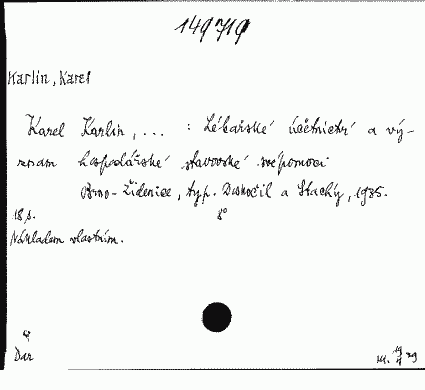 149719
Karlin, Karel
Karel Karlin, ... : Lékařské účetnictví a vý-
znam hospodářské stavovské svépomoci
Brno-Židenice, typ. Doskočil a Stachý, 1935.
18 s. 8°
Nákladem vlastním.
Dar